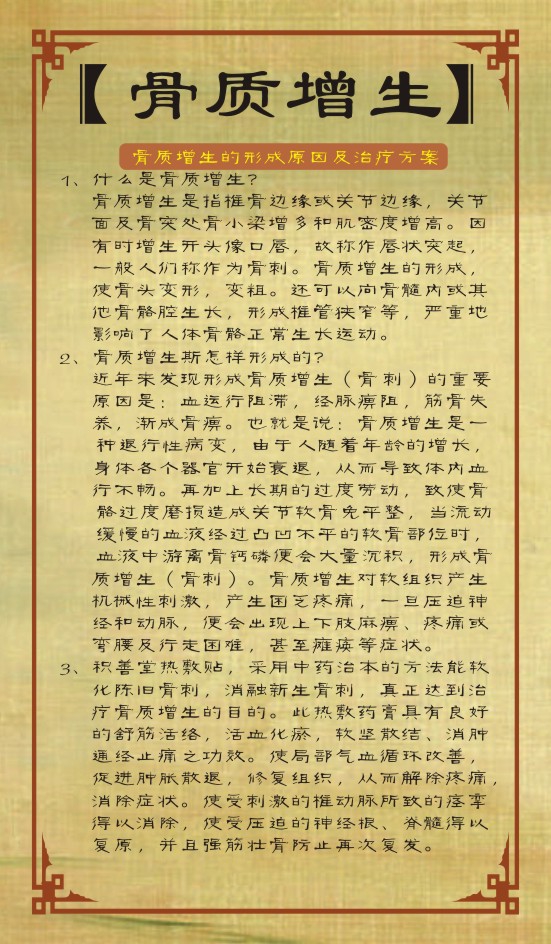 【骨质增生】
骨质增生的形成原因及治疗方案
1、什么是骨质增生?
骨质增生是指椎骨边缘或关节边缘，关节
面及骨突处骨小梁增多和肌密度增高。因
有时增生开头像口唇，故称作唇状突起，
一般人们称作为骨刺。骨质增生的形成，
使骨头变形，变粗。还可以向骨髓内或其
他骨骼腔生长，形成椎管狭窄等，严重地
影响了人体骨骼正常生长运动。
2、骨质增生斯怎样形成的?
近年来发现形成骨质增生（骨刺）的重要
原因是：血运行阻滞，经脉痹阻，筋骨失
养，渐成骨痹。也就是说：骨质增生是一
种退行性病变，由于人随着年龄的增长，
身体各个器官开始衰退，从而导致体内血
行不畅。再加上长期的过度劳动，致使骨
骼过度磨损造成关节软骨免平整，当流动
缓慢的血液经过凸凹不平的软骨部位时，
血液中游离骨钙磷便会大量沉积，形成骨
质增生（骨刺）。骨质增生对软组织产生
机械性刺激，产生困乏疼痛，一旦压迫神
经和动脉，便会出现上下肢麻痹、疼痛或
弯腰及行走困难，甚至瘫痪等症状。
3、积善堂热敷贴，采用中药治本的方法能软
化陈旧骨刺，消融新生骨刺，真正达到治
疗骨质增生的目的。此热敷药膏具有良好
的舒筋活络，活血化瘀，软坚散结、消肿
通经止痛之功效。使局部气血循环改善，
促进肿胀散退，修复组织，从而解除疼痛，
消除症状。使受刺激的椎动脉所致的痉挛
得以消除，使受压迫的神经根、脊髓得以
复原，并且强筋壮骨防止再次复发。